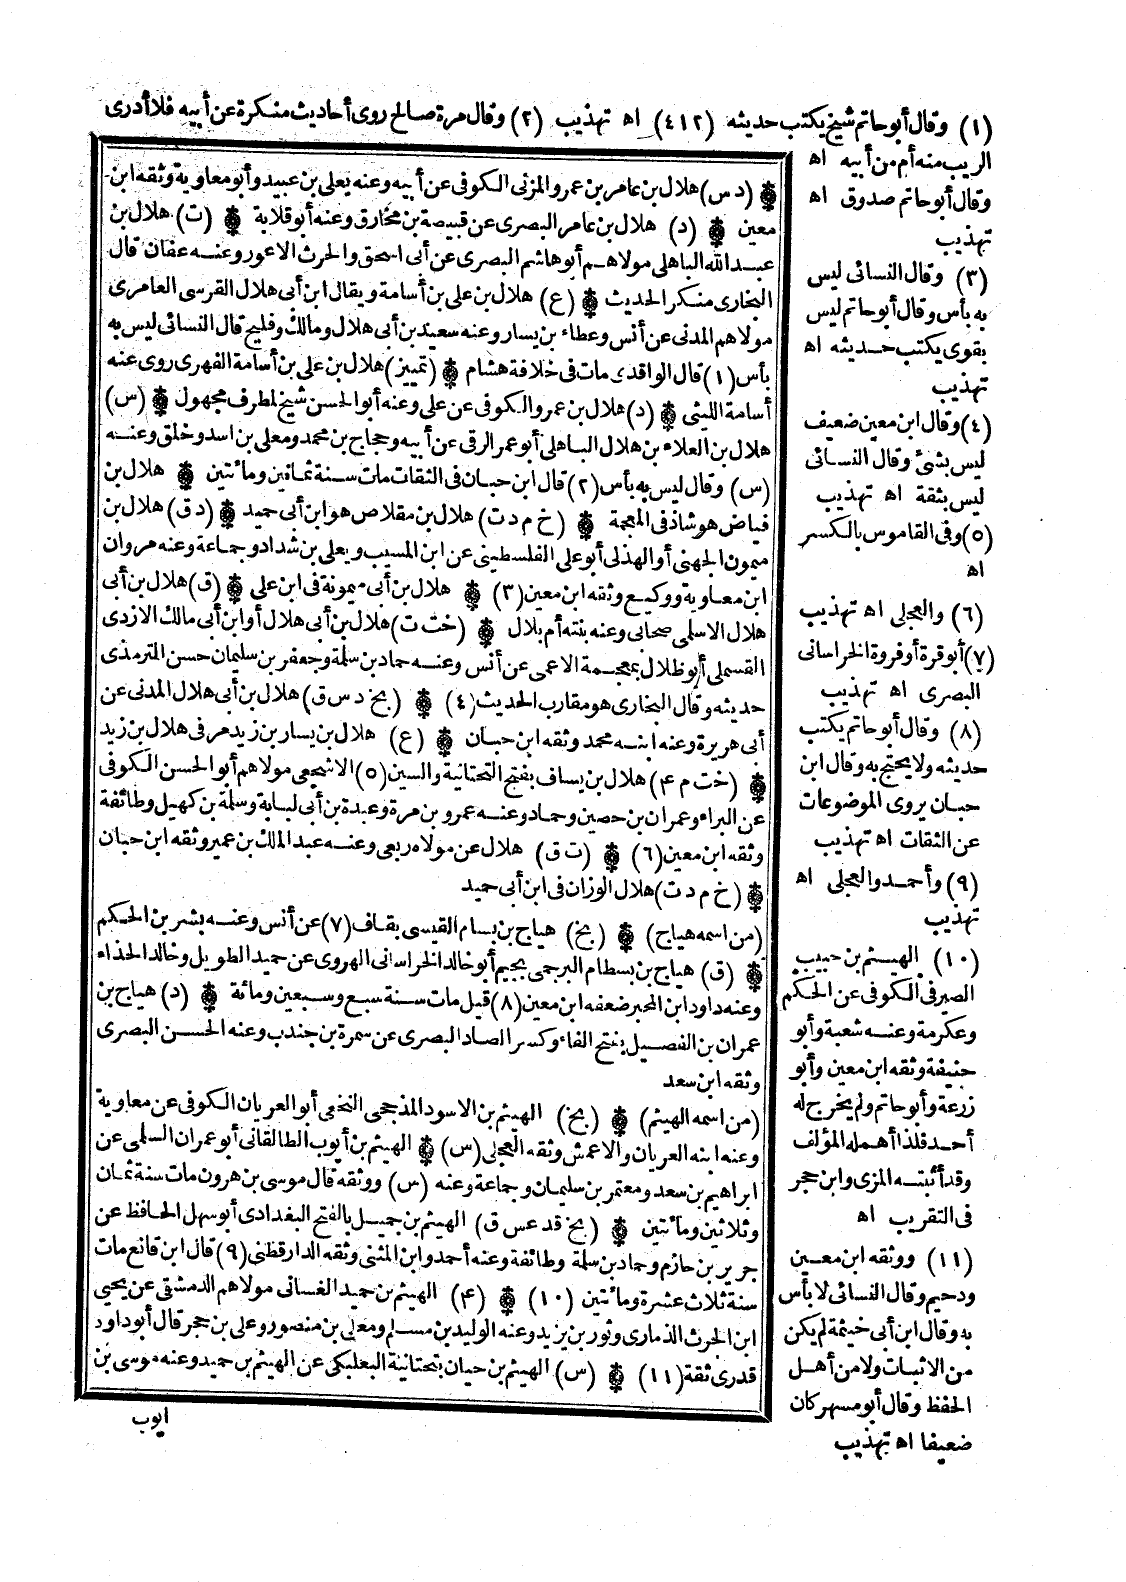 (١) وقال أبو حاتم شيخ يكتب حديثه (٤١٢) اه تهذيب (٢) وقال مرة صالح روى أحاديث منكرة عن أبيه فلا أدرى
الريب منه أم من أبيه اه
وقال أبو حاتم صدوق اه
تهذيب
(٣) وقال النسائى ليس
به بأس وقال أبو حاتم ليس
بقوى يكتب حديثه اه
تهذيب
(٤) وقال ابن معين ضعيف
ليس بشئ وقال النسائى
ليس بثقة اه تهذيب
(٥) وفى القاموس بالكسر
اه
(٦) والعجلى اه تهذيب
(٧) أبو قرة أو فروة الخراسانى
البصرى اه تهذيب
(٨) وقال أبو حاتم يكتب
حديثه ولا يحتج به وقال ابن
حبان يروى الموضوعات
عن الثقات اه تهذيب
(٩) وأحمد والعجلى اه
تهذيب
(١٠) الهيثم بن حبيب
الصيرفى الكوفى عن الحكم
وعكرمة وعنه شعبة وأبو
حنيفة وثقه ابن معين وأبو
زرعة وأبو حاتم ولم يخرج له
أحد فلذا أهمله المؤلف
وقد أثبته المزى وابن حجر
فى التقريب اه
(١١) ووثقه ابن معين
ودحيم وقال النسائى لا بأس
به وقال ابن أبى خيثمة لم يكن
من الاثبات ولا من أهل
الحفظ وقال أبو مسهر كان
ضعيفا اه تهذيب
(د س) هلال بن عامر بن عمرو المزنى الكوفى عن أبيه وعنه يعلى بن عبيد وأبو معاوية وثقه ابن
معين (د) هلال بن عامر البصرى عن قبيصة بن مخارق وعنه أبو قلابة (ت) هلال بن
عبد الله الباهلى مولاهم أبو هاشم البصرى عن أبى اسحق والحرث الاعور وعنه عفان قال
البخارى منكر الحديث (ع) هلال بن على بن أسامة ويقال ابن أبى هلال القرسى العامرى
مولاهم المدنى عن أنس وعطاء بن يسار وعنه سعيد بن أبى هلال ومالك وفليح قال النسائى ليس به
بأس (١) قال الواقدى مات فى خلافة هشام (تمييز) هلال بن على بن أسامة الفهرى روى عنه
أسامة الليثى (د) هلال بن عمرو الكوفى عن على وعنه أبو الحسن شيخ لمطرف مجهول (س)
هلال بن العلاء بن هلال الباهلى أبو عمر الرقى عن أبيه وحجاج بن محمد ومعلى بن اسد وخلق وعنه
(س) وقال ليس به بأس (٢) قال ابن حبان فى الثقات مات سنة ثمانين ومائتين هلال بن
فياض هو شاذ فى المعجمة (خ م د ت) هلال بن مقلاص هو ابن أبى حميد (د ق) هلال بن
ميمون الجهنى أو الهذلى أبو على الفلسطينى عن ابن المسيب ويعلى بن شداد وجماعة وعنه مروان
ابن معاوية ووكيع وثقه ابن معين (٣) هلال بن أبى ميمونة فى ابن على (ق) هلال بن أبى
هلال الاسلمى صحابى وعنه بنته أم بلال (خت ت) هلال بن أبى هلال أو ابن أبى مالك الازدى
القسملى أبو ظلال بمعجمة الاعمى عن أنس وعنه حماد بن سلمة وجعفر بن سليمان حسن الترمذى
حديثه وقال البخارى هو مقارب الحديث (٤) (بخ د س ق) هلال بن أبى هلال المدنى عن
أبى هريرة وعنه ابنه محمد وثقه ابن حبان (ع) هلال بن يسار بن زيد مر فى هلال بن زيد
(خت م ٤) هلال بن يساف بفتح التحتانية والسين (٥) الاشجعى مولاهم أبو الحسن الكوفى
عن البراء وعمران بن حصين وحماد وعنه عمرو بن مرة وعبدة بن أبى لبابة وسلمة بن كهيل وطائفة
وثقه ابن معين (٦) (ت ق) هلال عن مولاه ربعى وعنه عبد الملك بن عمير وثقه ابن حبان
(خ م د ت) هلال الوزان فى ابن أبى حميد
(من اسمه هياج) (بخ) هياج بن بسام القيسى بقاف (٧) عن أنس وعنه بشر بن الحكم
(ق) هياج بن بسطام البرجمى بجيم أبو خالد الخراسانى الهروى عن حميد الطويل وخالد الحذاء
وعنه داود ابن المحبر ضعفه ابن معين (٨) قيل مات سنة سبع وسبعين ومائة (د) هياج بن
عمران بن الفصيل بفتح الفاء وكسر الصاد البصرى عن سمرة بن جندب وعنه الحسن البصرى
وثقه ابن سعد
(من اسمه الهيثم) (بخ) الهيثم بن الاسود المذحجى النخعى أبو العريان الكوفى عن معاوية
وعنه ابنه العريان والاعمش وثقه العجلى (س) الهيثم بن أيوب الطالقانى أبو عمران السلمى عن
ابراهيم بن سعد ومعتمر بن سليمان وجماعة وعنه (س) ووثقه قال موسى بن هرون مات سنة ثمان
وثلاثين ومائتين (بخ قد عس ق) الهيثم بن جميل بالفتح البغدادى أبو سهل الحافظ عن
جرير بن حازم وحماد بن سلمة وطائفة وعنه أحمد وابن المثنى وثقه الدارقطنى (٩) قال ابن قانع مات
سنة ثلاث عشرة ومائتين (١٠) (٤) الهيثم بن حميد الغسانى مولاهم الدمشقى عن يحيى
ابن الحرث الذمارى وثور بن يزيد وعنه الوليد بن مسلم ومعلى بن منصور وعلى بن حجر قال أبو داود
قدرى ثقة (١١) (س) الهيثم بن حيان بتحتانية البعلبكى عن الهيثم بن حميد وعنه موسى بن
ايوب